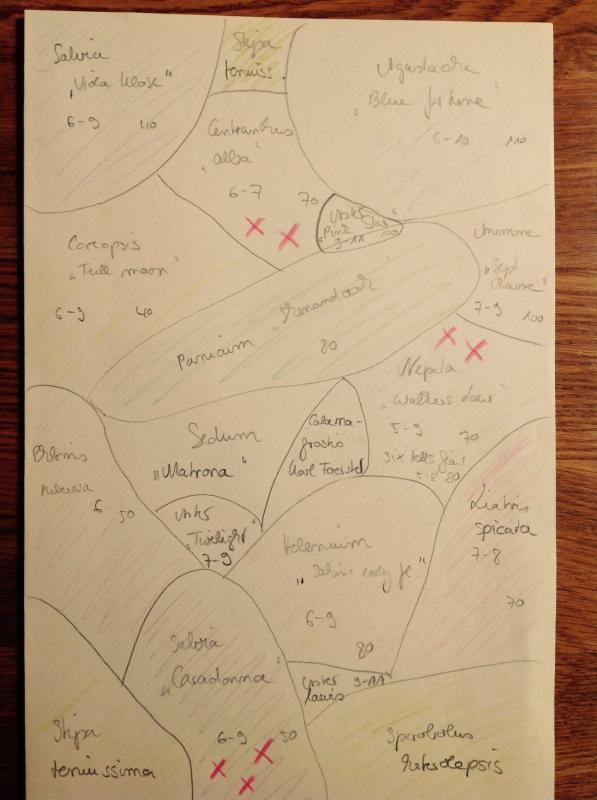 Salvia
„Viola Klose"
6-9 40
Stipa
tenuiss.
Agastache
„Blue fortune"
6-10 110
Centranthus
„alba"
6-7 70
Aster
„Pink Star"
9-11 100
Coreopsis
„Full moon"
6-9 40
Anemone
„Sept.
Charme"
7-9 100
Panicum „Shenandoah"
80
Nepeta
„Walkers Low"
5-9 70
Six Hills Giant
5-8 80
Sedum
„Matrona"
Calama-
grostis
Karl Foerster
Phlomis
tuberosa
6 50
Aster
„Twilight"
7-9
Helenium
„Sahin's early fl."
6-9
80
Liatris
spicata
7-8
70
Salvia
„Caradonna"
6-9 50
Aster 9-11
laevis
Stipa
tenuissima
Sporobolus
heterolepsis